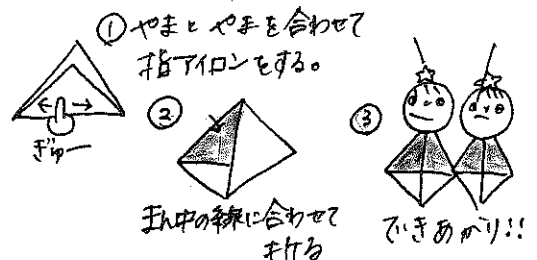 ① やまとやまを合わせて
指アイロンをする。
ぎゅー
②
まん中の線に合わせて
折る
③
できあがり!!